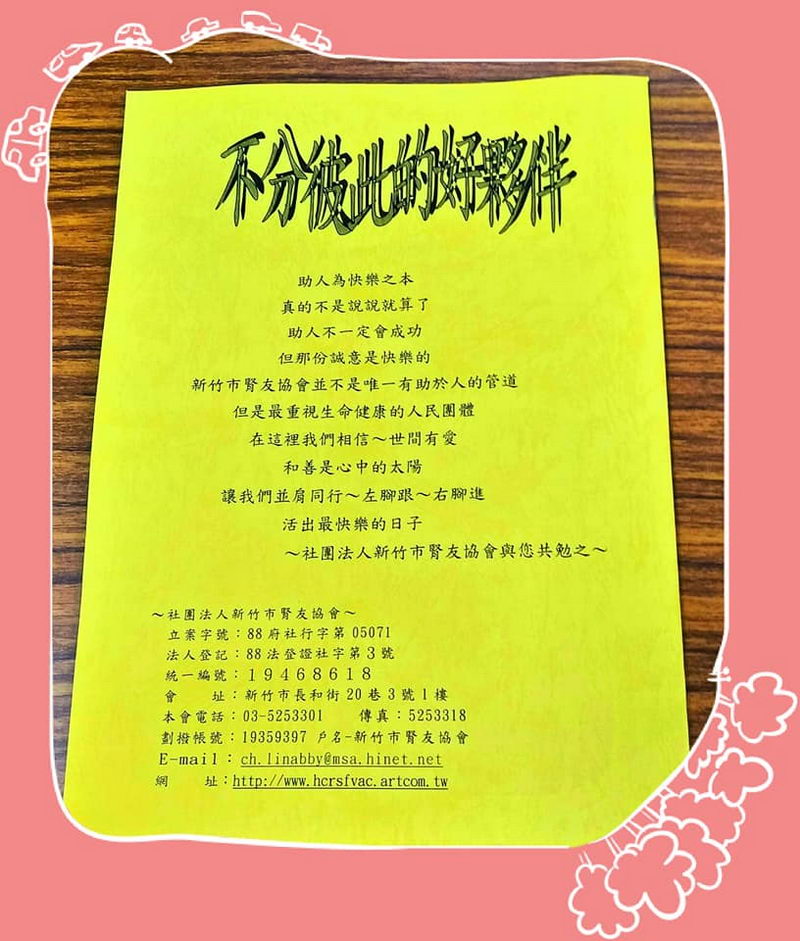 不分彼此的好夥伴
助人為快樂之本
真的不是說說就算了
助人不一定會成功
但那份誠意是快樂的
新竹市腎友協會並不是唯一有助於人的管道
但是最重視生命健康的人民團體
在這裡我們相信～世間有愛
和善是心中的太陽
讓我們並肩同行～左腳跟～右腳進
活出最快樂的日子
～社團法人新竹市腎友協會與您共勉之～
～社團法人新竹市腎友協會～
立案字號：88府社行字第05071
法人登記：88法登證社字第3號
統一編號：19468618
會　　址：新竹市長和街20巷3號1樓
本會電話：03-5253301　　傳真：5253318
劃撥帳號：19359397 戶名-新竹市腎友協會
E-mail：ch.linabby@msa.hinet.net
網　　址：http://www.hcrsfvac.artcom.tw